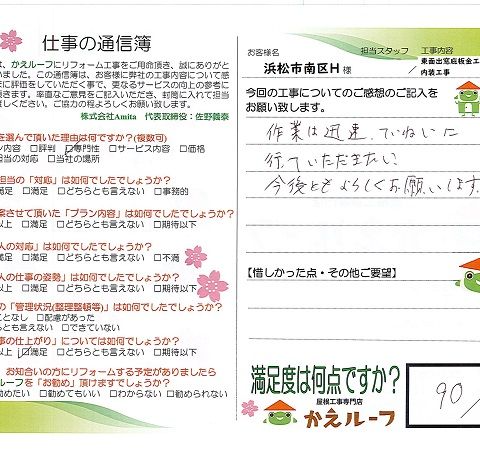 仕事の通信簿
は、かえルーフにリフォーム工事をご用命頂き、誠にありがと
いました。この通信簿は、お客様に弊社の工事内容について感
まに評価をしていただく事で、更なるサービスの向上の参考に
頂きます。率直なご意見をご記入いただき、封筒に入れて担当
渡しください。ご協力の程よろしくお願い致します。
株式会社Amita 代表取締役：佐野義泰
を選んで頂いた理由は何ですか?(複数可)
ン内容 □評判 □専門性 □サービス内容 □価格
担当の対応 □当社の場所
担当の「対応」は如何でしたでしょうか?
満足 □満足 □どちらとも言えない □事務的
案させて頂いた「プラン内容」は如何でしたでしょうか?
以上 □満足 □どちらとも言えない □期待以下
人の対応」は如何でしたでしょうか?
満足 □満足 □どちらとも言えない □不満
人の仕事の姿勢」は如何でしたでしょうか?
以上 □満足 □どちらとも言えない □期待以下
の「管理状況(整理整頓等)」は如何でしたでしょうか?
ことなし □配慮があった
とも言えない □できていない
事の仕上がり」については如何でしたでしょうか?
以上 □満足 □どちらとも言えない □期待以下
お知合いの方にリフォームする予定がありましたら
ルーフを「お勧め」頂けますでしょうか?
勧めたい □勧めてもいい □わからない □勧められない
お客様名 担当スタッフ 工事内容
浜松市南区H様 / 東面出窓庇板金工
内装工事
今回の工事についてのご感想のご記入を
お願い致します。
作業は迅速、ていねいに
行っていただきたい
今後ともよろしくお願いします
【惜しかった点・その他ご要望】
満足度は何点ですか?
90/
屋根工事専門店
かえルーフ